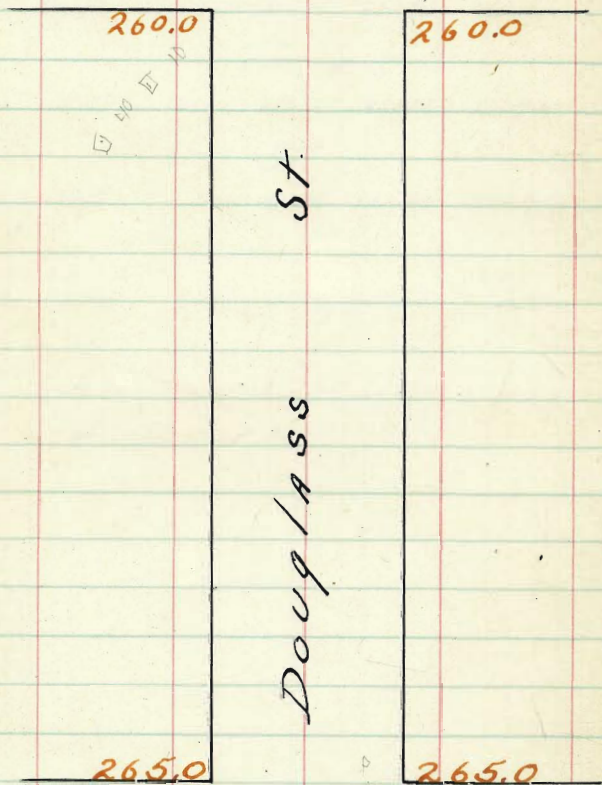 260.0 260.0
40 10
Douglass St.
265.0 265.0